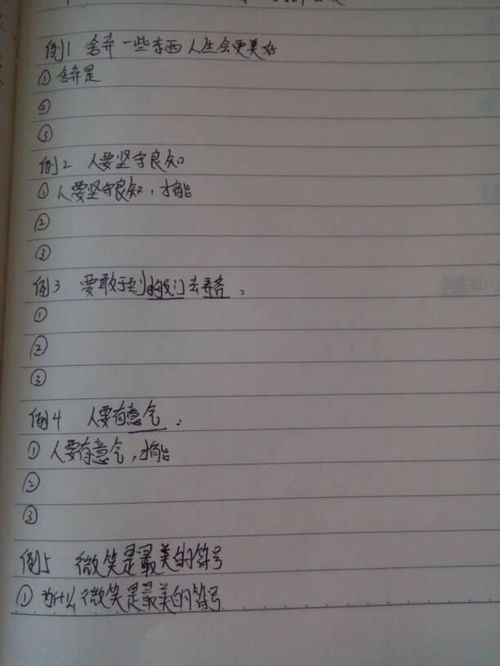 例1 舍弃一些东西人生会更美好
① 舍弃是
②
③
例2 人要坚守良知
① 人要坚守良知，才能
②
③
例3 要敢于到水很深的去弃舍：
①
②
③
例4 人要有意气：
① 人要有意气，才能
②
③
例5 微笑是最美的符号
① 为什么微笑是最美的符号